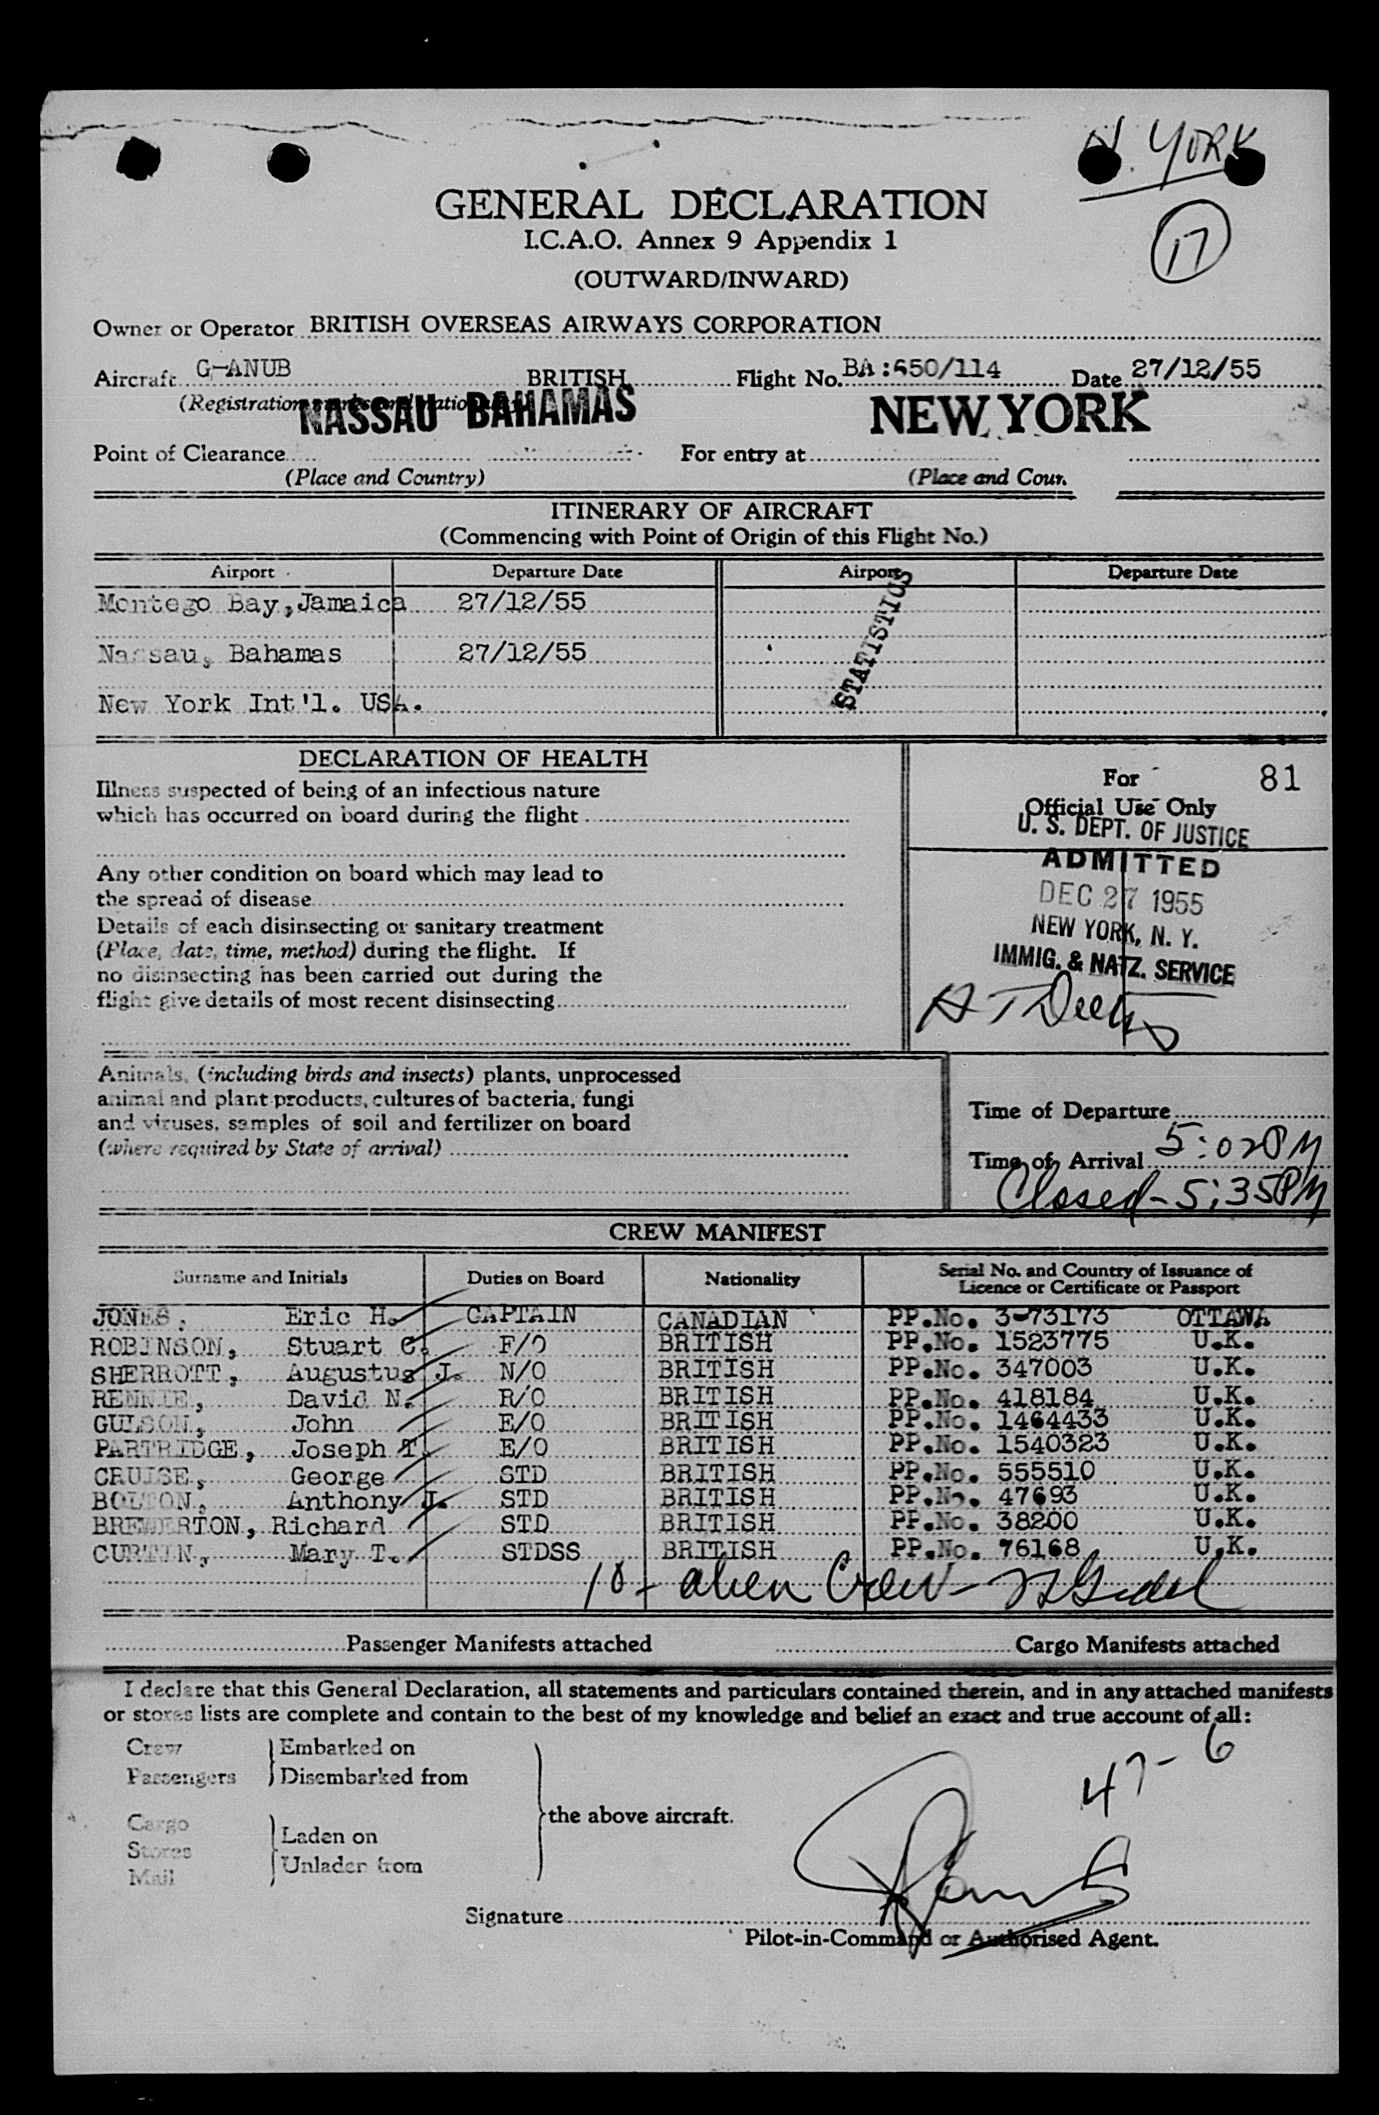 N. YORK
17
GENERAL DECLARATION
I.C.A.O. Annex 9 Appendix 1
(OUTWARD/INWARD)
Owner or Operator BRITISH OVERSEAS AIRWAYS CORPORATION
Aircraft G-ANUB BRITISH Flight No. BA:650/114 Date 27/12/55
(Registration
NASSAU BAHAMAS NEW YORK
Point of Clearance For entry at
(Place and Country) (Place and Coun
ITINERARY OF AIRCRAFT
(Commencing with Point of Origin of this Flight No.)
Airport Departure Date Airport Departure Date
Montego Bay, Jamaica 27/12/55
STATISTICS
Nassau, Bahamas 27/12/55
New York Int'l. USA.
DECLARATION OF HEALTH
Illness suspected of being of an infectious nature
which has occurred on board during the flight
Any other condition on board which may lead to
the spread of disease
Details of each disinsecting or sanitary treatment
(Place, date, time, method) during the flight. If
no disinsecting has been carried out during the
flight give details of most recent disinsecting
For 81
Official Use Only
U. S. DEPT. OF JUSTICE
ADMITTED
DEC 27 1955
NEW YORK, N. Y.
IMMIG. & NATZ. SERVICE
Animals, (including birds and insects) plants, unprocessed
animal and plant products, cultures of bacteria, fungi
and viruses, samples of soil and fertilizer on board
(where required by State of arrival)
Time of Departure
Time of Arrival 5:02PM
Closed - 5:35PM
CREW MANIFEST
Surname and Initials Duties on Board Nationality Serial No. and Country of Issuance of
Licence or Certificate or Passport
JONES, Eric H. CAPTAIN CANADIAN PP.No. 3-73173 OTTAWA
ROBINSON, Stuart C. F/O BRITISH PP.No. 1523775 U.K.
SHERROTT, Augustus J. N/O BRITISH PP.No. 347003 U.K.
RENNIE, David N. R/O BRITISH PP.No. 418184 U.K.
GULSON, John E/O BRITISH PP.No. 1464433 U.K.
PARTRIDGE, Joseph T. E/O BRITISH PP.No. 1540323 U.K.
CRUISE, George STD BRITISH PP.No. 555510 U.K.
BOLTON, Anthony J. STD BRITISH PP.No. 47693 U.K.
BREWERTON, Richard STD BRITISH PP.No. 38200 U.K.
CURTIN, Mary T. STDSS BRITISH PP.No. 76168 U.K.
10 - alien Crew -
Passenger Manifests attached Cargo Manifests attached
I declare that this General Declaration, all statements and particulars contained therein, and in any attached manifests
or stores lists are complete and contain to the best of my knowledge and belief an exact and true account of all:
Crew Embarked on
Passengers Disembarked from
the above aircraft.
Cargo
Stores Laden on
Mail Unladen from
47-6
Signature
Pilot-in-Command or Authorised Agent.